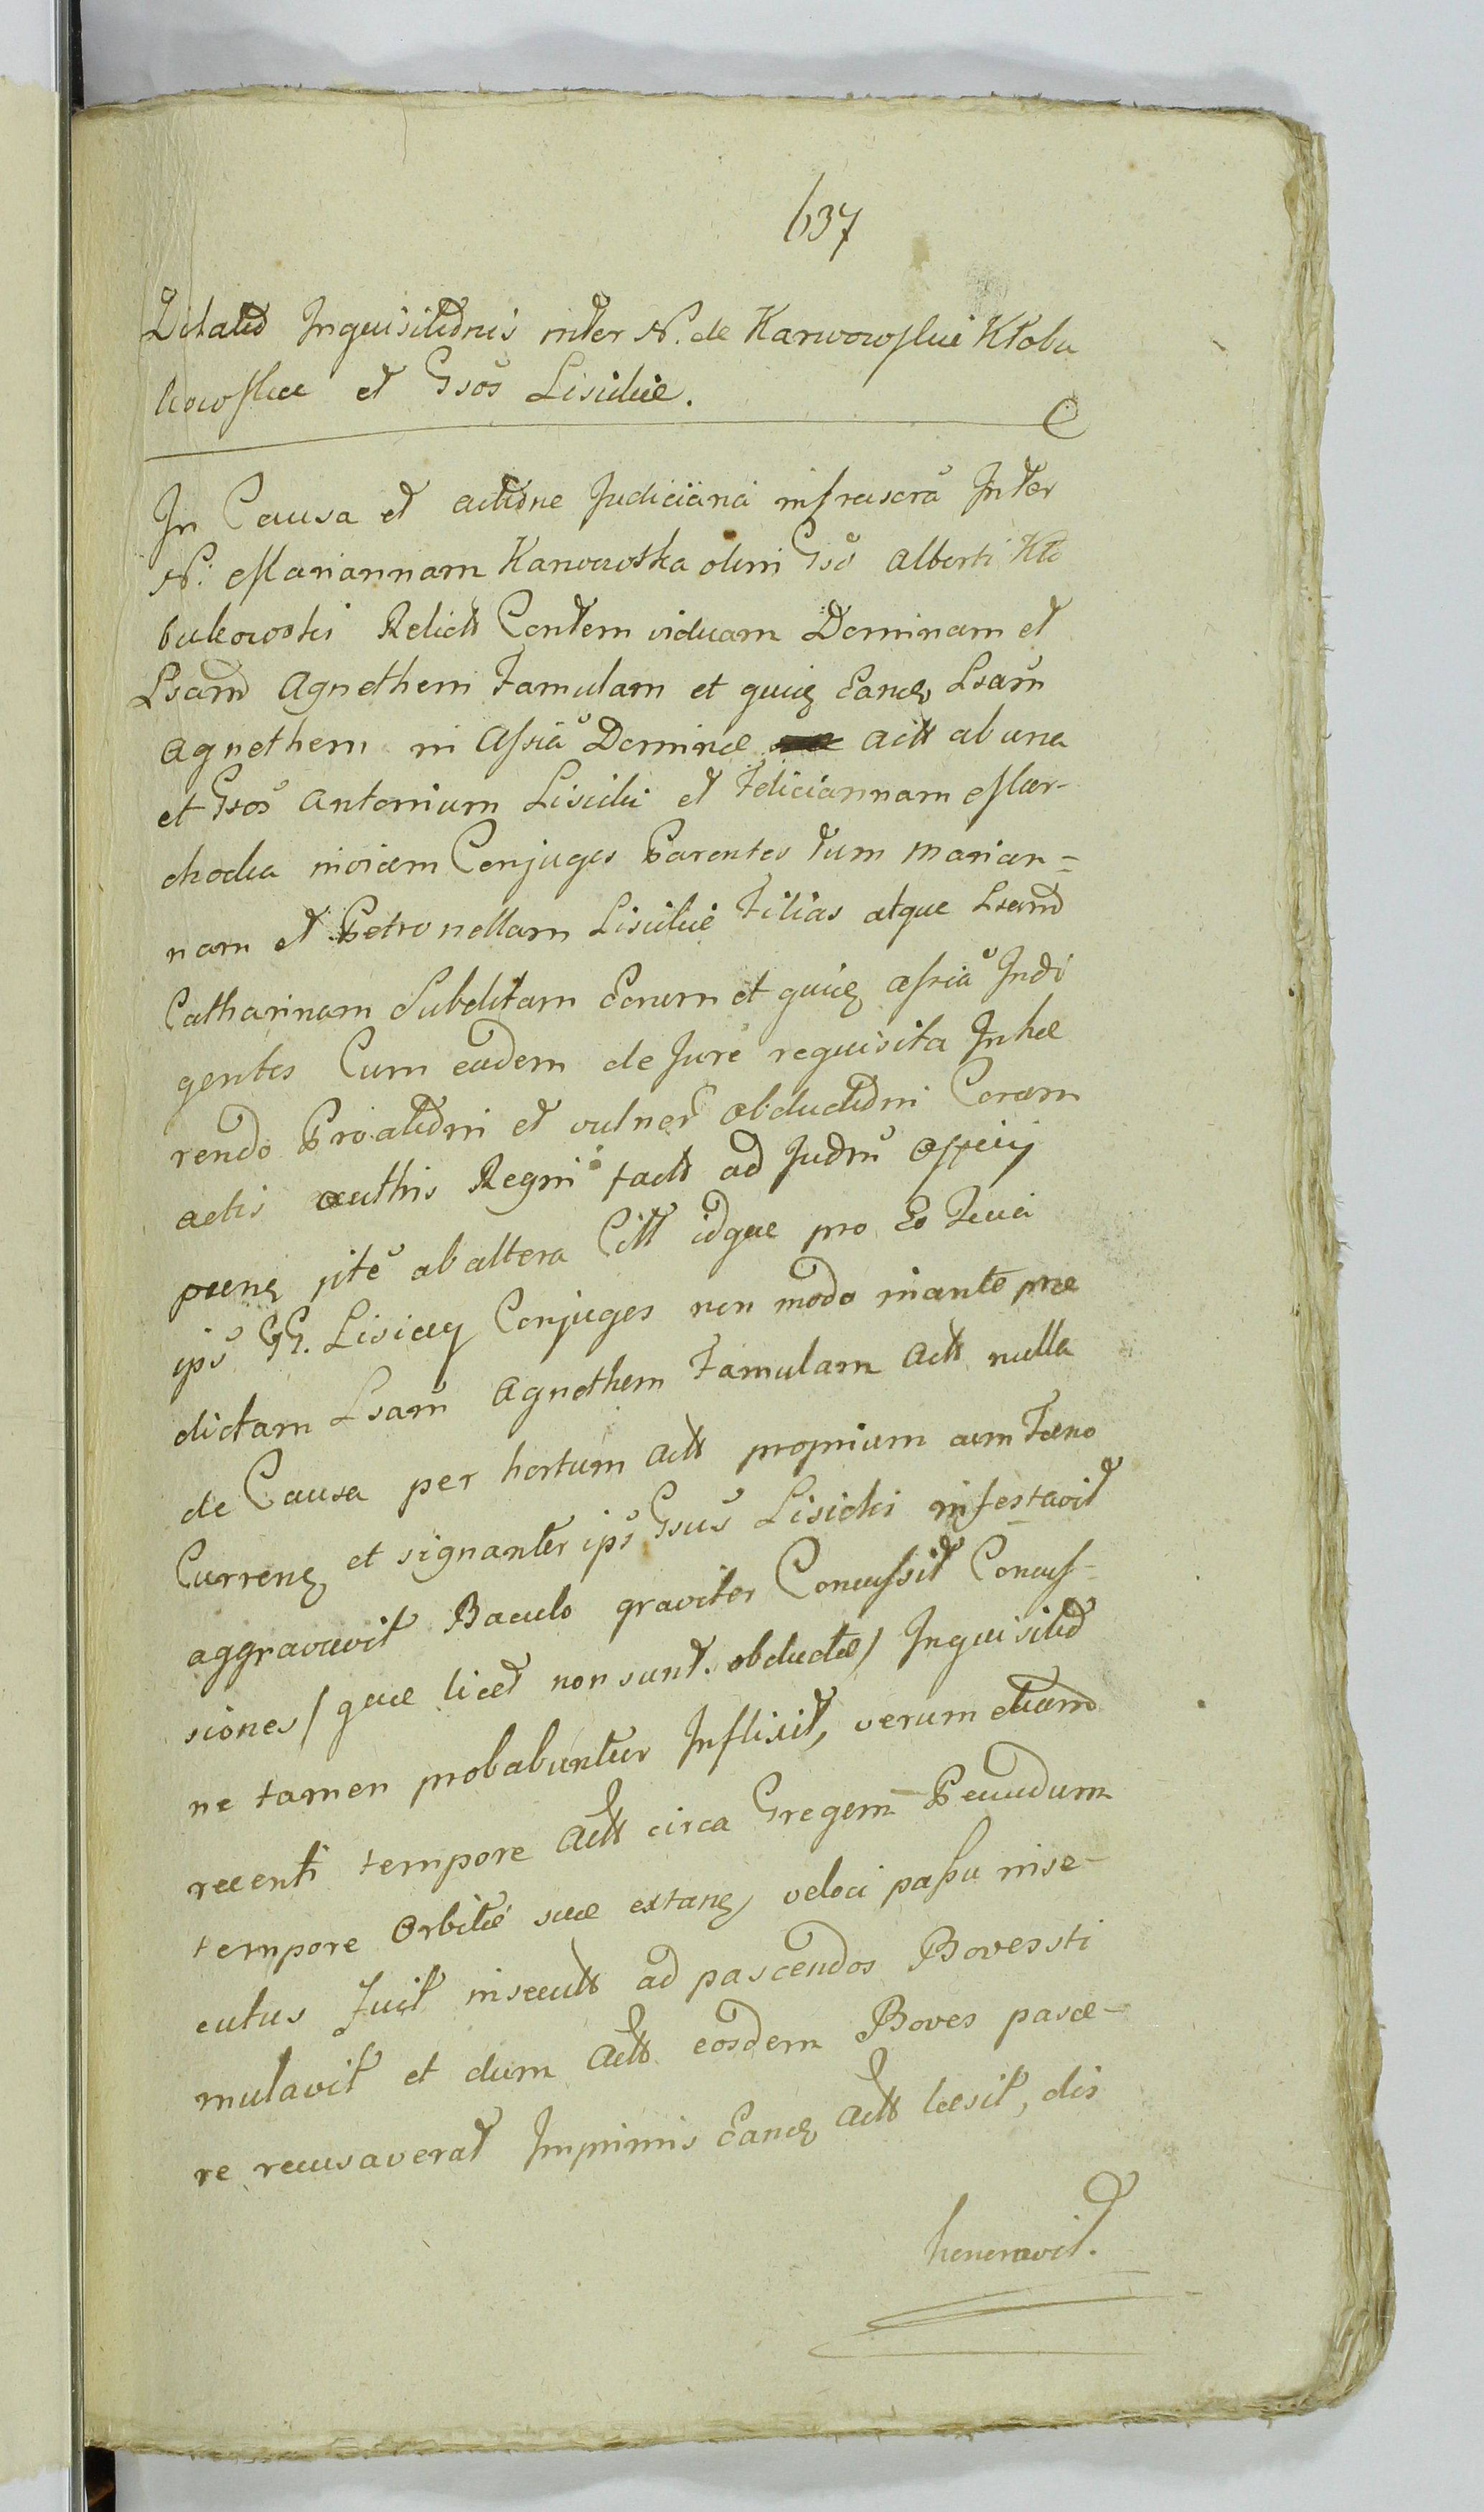 637
Dilatio Inquisitionis inter N. de Karwowskie Kłobu
kowska et Gsos Lisickie.
In Causa et actione Judiciaria infrascra Inter
N. Mariannam Karwowska olim Gsi Alberti Kło
bukowski Relict Contem viduam Dominam et
Lsam Agnethem Famulam et quiq Eand Lsam
Agnethem in Assia Dominae act ab una
et Gsos Antonium Lisicki et Feliciannam Mar-
chocka invicem Conjuges Parentes tum Marian=
nam et Petronellam Lisickie Filias atque Lsam
Catharinam Subditam Eorum et quiq assia Indi
gentes Cum eadem de Jure requisita Inhae
rendo Proaltioni et vulner obductioni Coram
actis authis Regni fact ad Judm Officij
pnens rite ab altera Citt idque pro Eo Quia
ipsi GG. Lisiccy Conjuges non modo inante prae
dictam Lsam Agnethem Famulam Act nulla
de Causa per hortum Act proprium cum Faeno
Currens et signanter ips Gsus Lisicki infestavit
aggravavit Baculo graviter Concussit Concus-
siones / quae licet non sunt obductae / Inquisitio
ne tamen probabuntur Inflixit, verum etiam
recenti tempore Act circa Gregem Pecudum
tempore Orbitae suae extans, veloci passu inse-
cutus fuit insecut ad pascendos Boves sti
mulavit et dum Act eosdem Boves pasce-
re recusaverat Imprimis Eand Act laesit, dis
honoravit.